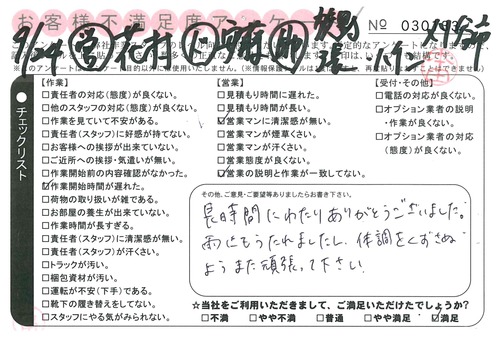 お客様不満足度アンケ
No 030
チェックリスト
【作業】
□責任者の対応(態度)が良くない。
□他のスタッフの対応(態度)が良くない。
□作業を見ていて不安がある。
□責任者(スタッフ)に好感が持てない。
□お客様への挨拶が出来ていない。
□ご近所への挨拶・気遣いが無い。
□作業開始前の内容確認がなかった。
☑作業開始時間が遅れた。
□荷物の取り扱いが雑である。
□お部屋の養生が出来ていない。
□作業時間が長すぎる。
□責任者(スタッフ)に清潔感が無い。
□責任者(スタッフ)が汗くさい。
□トラックが汚い。
□梱包資材が汚い。
□運転が不安(下手)である。
□靴下の履き替えをしてない。
□スタッフにやる気がみられない。
【営業】
□見積もり時間に遅れた。
□見積もり時間が長い。
□営業マンに清潔感が無い。
□営業マンが煙草くさい。
□営業マンが汗くさい。
□営業態度が良くない。
□営業の説明と作業が一致してない。
【受付・その他】
□電話の対応が良くない。
□オプション業者の説明
・作業が良くない。
□オプション業者の対応
(態度)が良くない。
その他、ご意見・ご要望等ありましたらお書き下さい。
長時間にわたりありがとうございました。
雨にもうたれましたし、体調をくずさぬ
ようまた頑張って下さい
☆当社をご利用いただきまして、ご満足いただけたでしょうか?
□不満 □やや不満 □普通 □やや満足 ☑満足